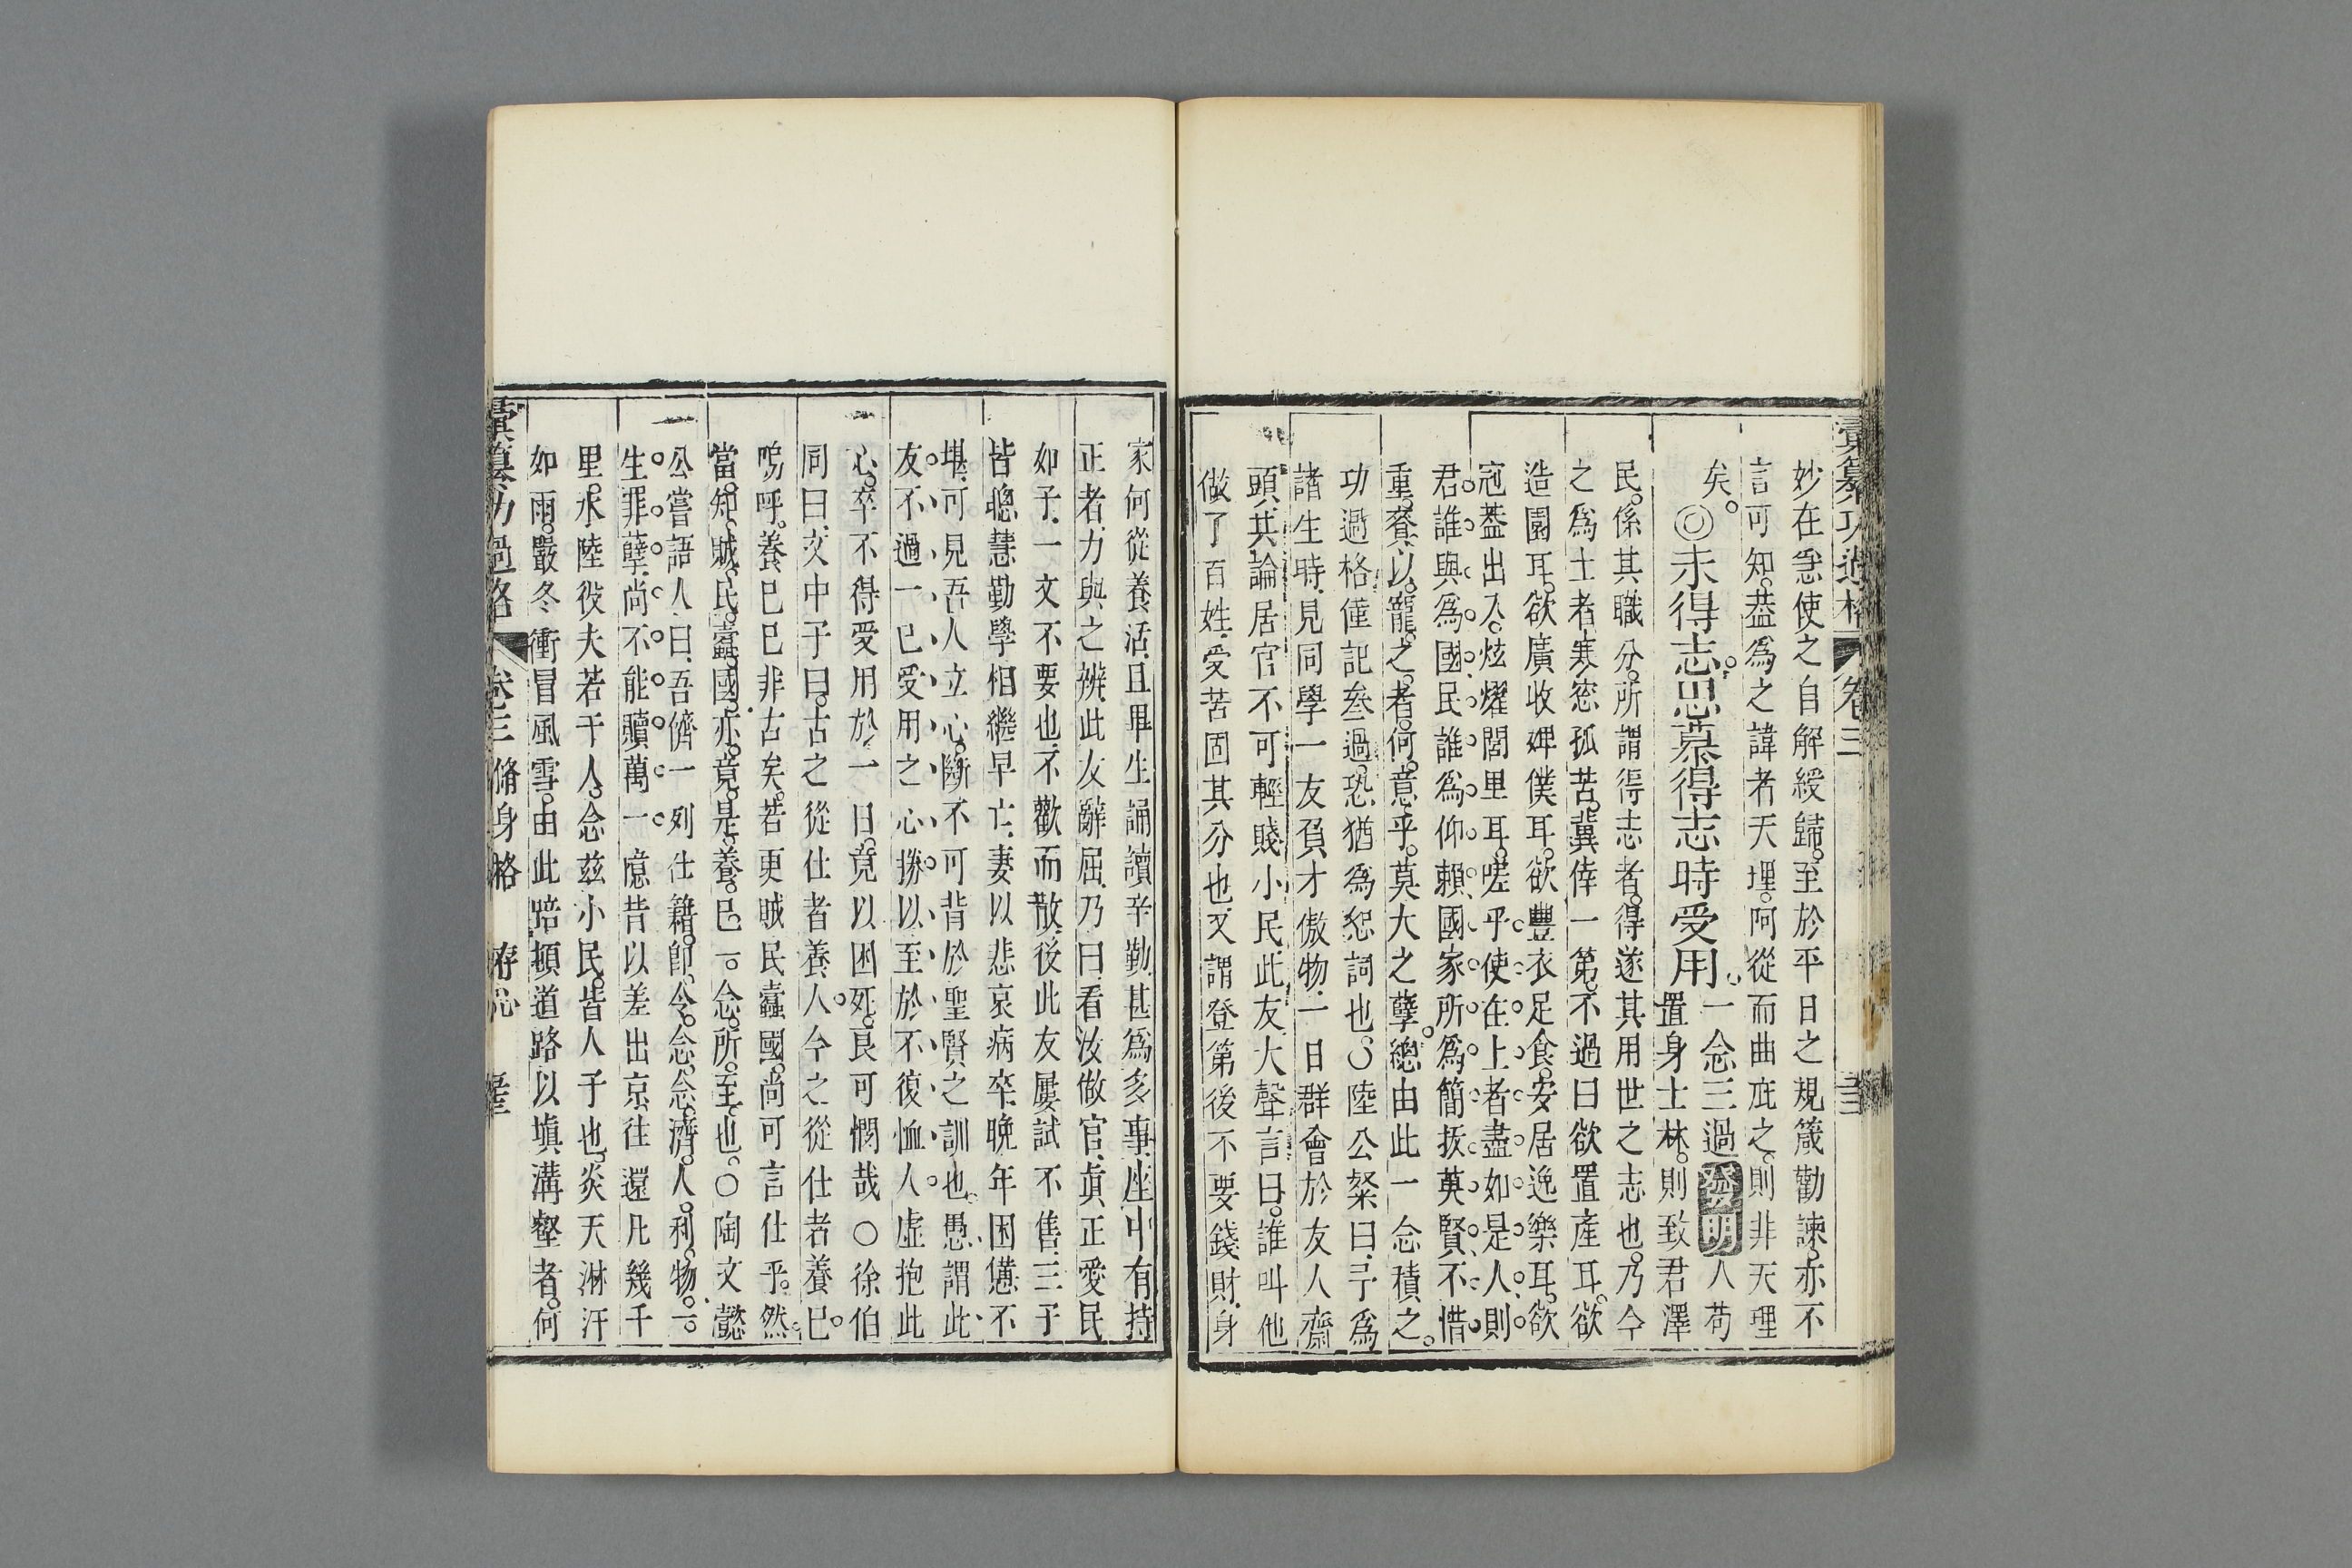 彙纂功過格 卷三
妙在急使之自解緩歸。至於平日之規箴勸諫。亦不
言可知。葢爲之諱者天理。阿從而曲庇之。則非天理
矣。
◎未得志。思慕得志時受用。一念三過 發明 人苟
置身士林。則致君澤
民。係其職分。所謂得志者。得遂其用世之志也。乃今
之爲士者。寒窓孤苦。冀倖一第。不過曰欲置產耳。欲
造園耳。欲廣收婢僕耳。欲豐衣足食。安居逸樂耳。欲
冠葢出入。炫燿閭里耳。嗟乎。使在上者盡如是人。則
君誰與爲國。民誰爲仰賴。國家所爲簡拔英賢。不惜
重賚以寵之者。何意乎。莫大之孽。總由此一念積之。
功過格僅記叁過。恐猶爲恕詞也。○陸公粲曰。予爲
諸生時。見同學一友。負才傲物。一日群會於友人齋
頭。共論居官不可輕賤小民。此友大聲言曰。誰叫他
做了百姓。受苦固其分也。又謂登第後不要錢財。身
家何從養活。且畢生誦讀辛勤。甚爲多事。座中有持
正者。力與之辨。此友辭屈。乃曰。看汝做官。眞正愛民
如子。一文不要也。不歡而散。後此友屢試不售。三子
皆聰慧勤學。相繼早亡。妻以悲哀病卒。晚年困憊不
堪。可見吾人立心。斷不可背於聖賢之訓也。愚謂此
友不過一己受用之心勝。以至於不復恤人。虛抱此
心。卒不得受用於一日。竟以困死。良可憫哉。○徐伯
同曰。文中子曰。古之從仕者養人。今之從仕者養己。
嗚呼。養己已非古矣。若更賊民蠹國。尚可言仕乎。然
當知賊民蠹國。亦竟是養己一念所至也。○陶文懿
公嘗語人曰。吾儕一列仕籍。卽念念濟人利物。一
生罪孽。尚不能贖萬一。憶昔以差出京。往還凡幾千
里。水陸役夫若干人。念茲小民。皆人子也。炎天淋汗
如雨。嚴冬衝冒風雪。由此踣頓道路以塡溝壑者。何
彙纂功過格 卷三 脩身格